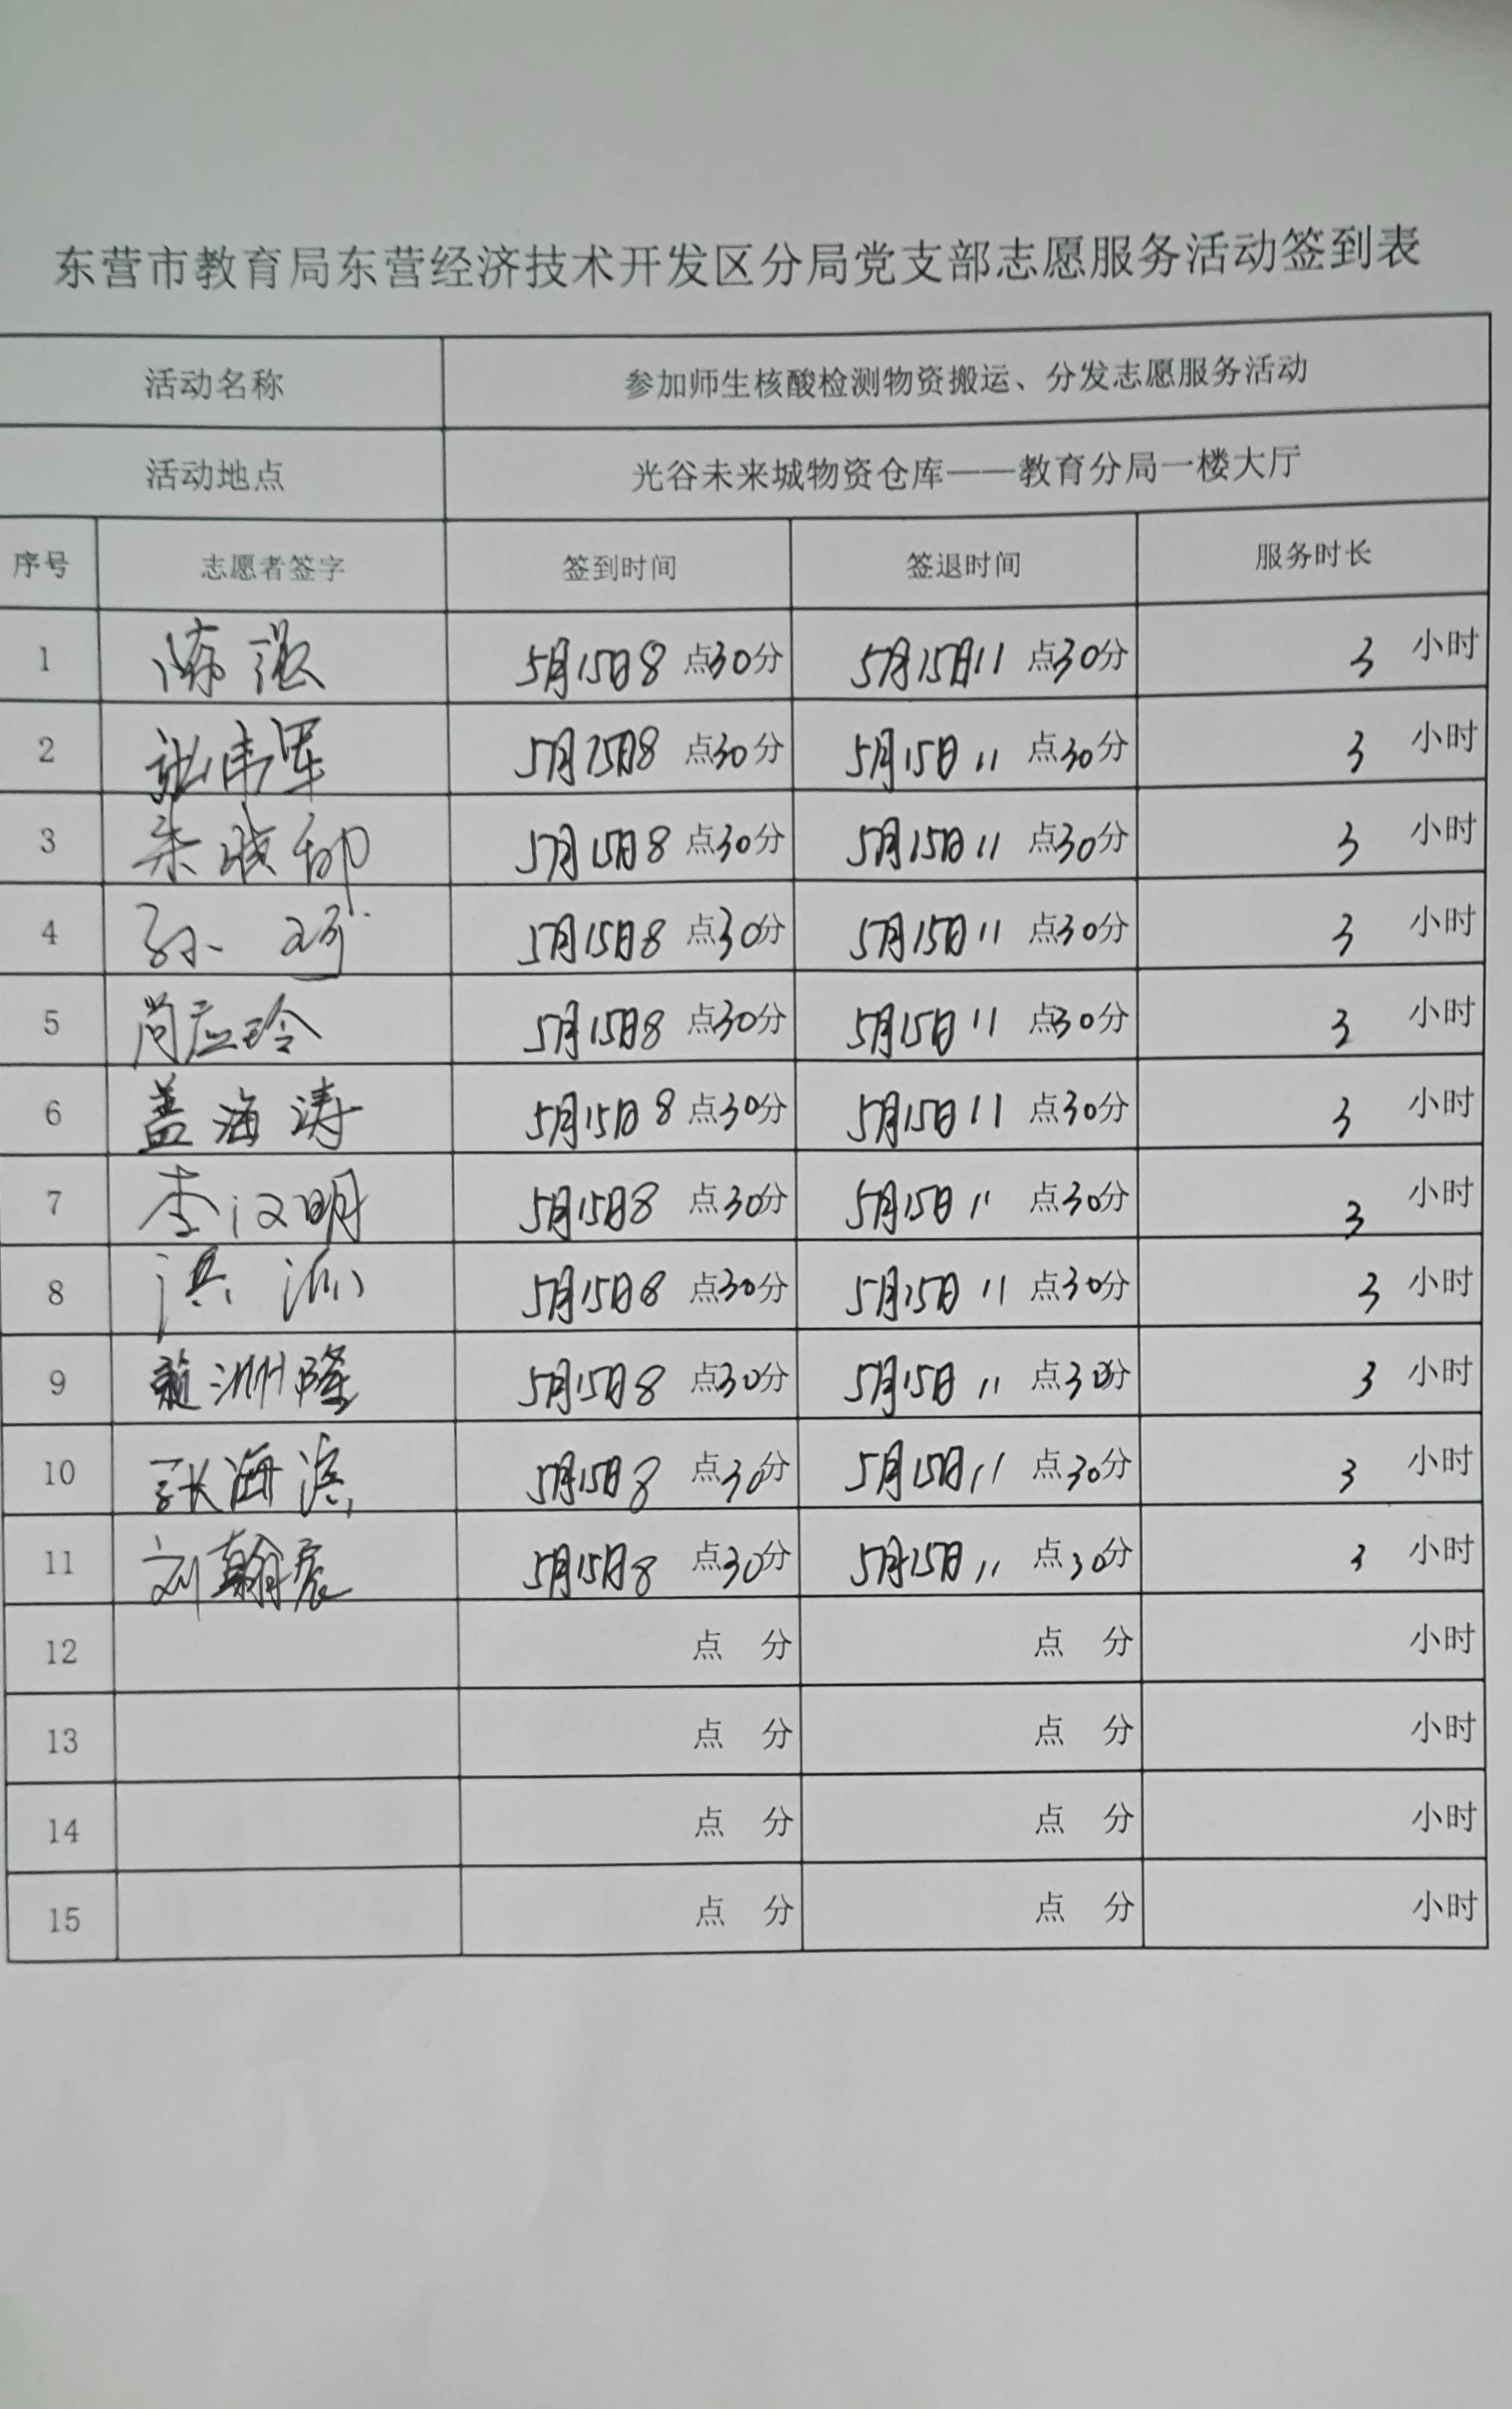 东营市教育局东营经济技术开发区分局党支部志愿服务活动签到表
活动名称 参加师生核酸检测物资搬运、分发志愿服务活动
活动地点 光谷未来城物资仓库——教育分局一楼大厅
序号 志愿者签字 签到时间 签退时间 服务时长
1 陈强 5月15日8点30分 5月15日11点30分 3小时
2 张伟军 5月15日8点30分 5月15日11点30分 3小时
3 朱 5月15日8点30分 5月15日11点30分 3小时
4 孙 5月15日8点30分 5月15日11点30分 3小时
5 尚应玲 5月15日8点30分 5月15日11点30分 3小时
6 盖海涛 5月15日8点30分 5月15日11点30分 3小时
7 李汉明 5月15日8点30分 5月15日11点30分 3小时
8 洪 5月15日8点30分 5月15日11点30分 3小时
9 洲隆 5月15日8点30分 5月15日11点30分 3小时
10 张海滨 5月15日8点30分 5月15日11点30分 3小时
11 刘翰宸 5月15日8点30分 5月15日11点30分 3小时
12 点 分 点 分 小时
13 点 分 点 分 小时
14 点 分 点 分 小时
15 点 分 点 分 小时